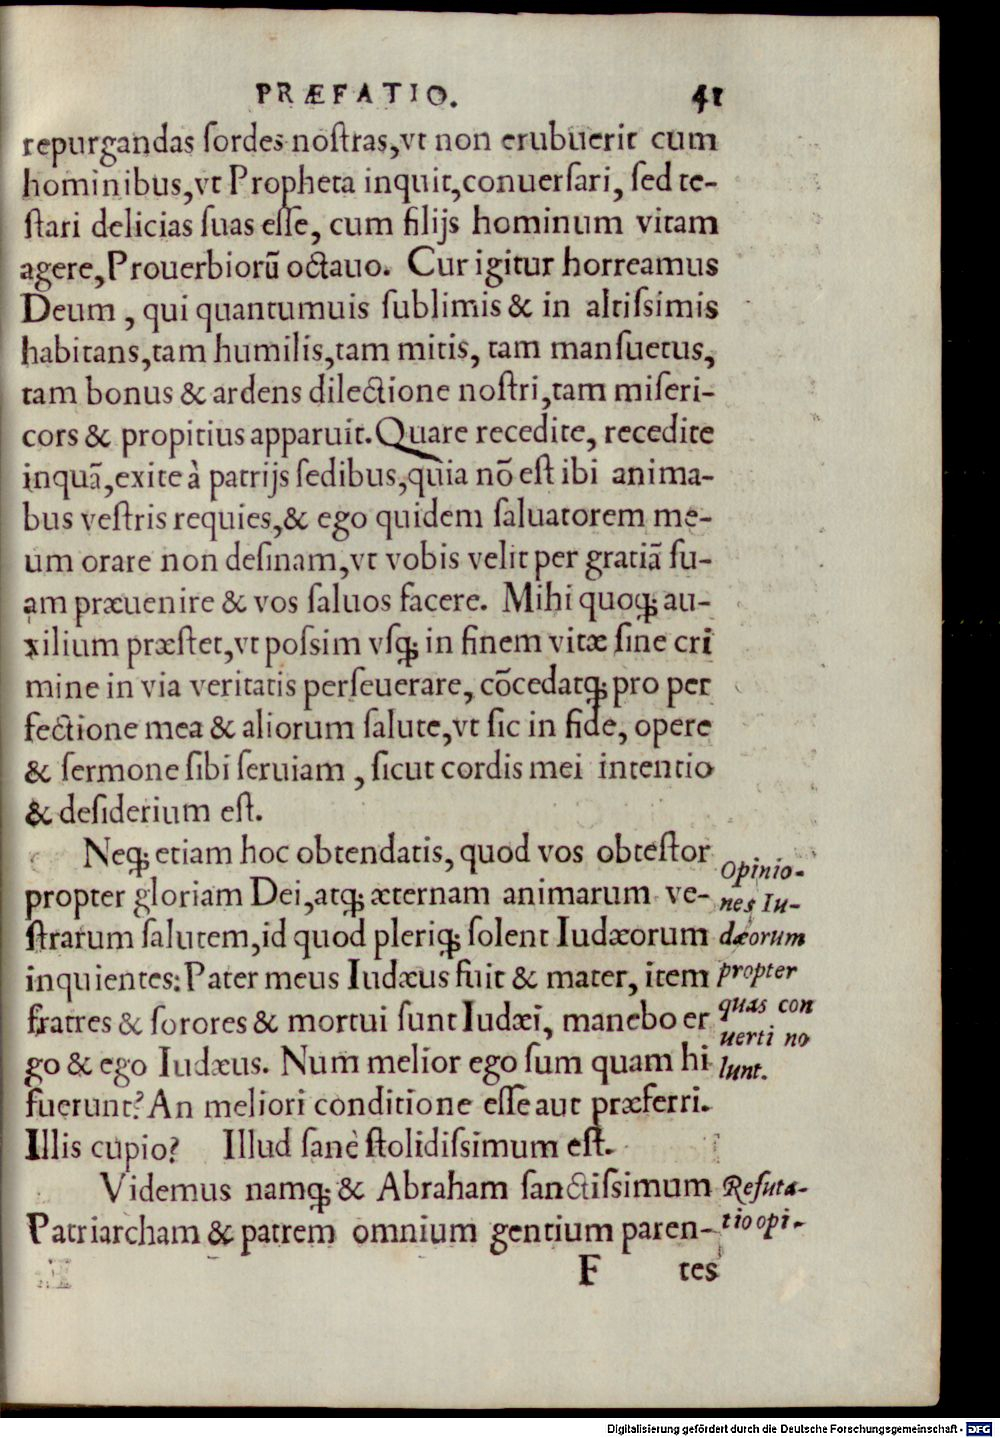 PRÆFATIO. 41
repurgandas ſordes noſtras,vt non erubuerit cum
hominibus,vt Propheta inquit,conuerſari, ſed te-
ſtari delicias ſuas eſſe, cum filijs hominum vitam
agere,Prouerbiorũ octauo. Cur igitur horreamus
Deum , qui quantumuis ſublimis & in altiſsimis
habitans,tam humilis,tam mitis, tam manſuetus,
tam bonus & ardens dilectione noſtri,tam miſeri-
cors & propitius apparuit. Quare recedite, recedite
inquã,exite à patrijs ſedibus,quia nõ eſt ibi anima-
bus veſtris requies,& ego quidem ſaluatorem me-
um orare non deſinam,vt vobis velit per gratiã ſu-
am præuenire & vos ſaluos facere. Mihi quoq; au-
xilium præſtet,vt poſsim vſq; in finem vitæ ſine cri
mine in via veritatis perſeuerare, cõcedatq; pro per
fectione mea & aliorum ſalute,vt ſic in fide, opere
& ſermone ſibi ſeruiam , ſicut cordis mei intentio
& deſiderium eſt.
Neq; etiam hoc obtendatis, quod vos obteſtor
propter gloriam Dei,atq; æternam animarum ve-
ſtrarum ſalutem,id quod pleriq; ſolent Iudæorum
inquientes: Pater meus Iudæus fuit & mater, item
fratres & ſorores & mortui ſunt Iudæi, manebo er
go & ego Iudæus. Num melior ego ſum quam hi
fuerunt? An meliori conditione eſſe aut præferri.
Illis cupio? Illud ſanè ſtolidiſsimum eſt.
Opinio-
nes Iu-
dæorum
propter
quas con
uerti no
lunt.
Videmus namq; & Abraham ſanctiſsimum
Patriarcham & patrem omnium gentium paren-
Refuta-
tio opi-
F tes
Digitalisierung gefördert durch die Deutsche Forschungsgemeinschaft - DFG